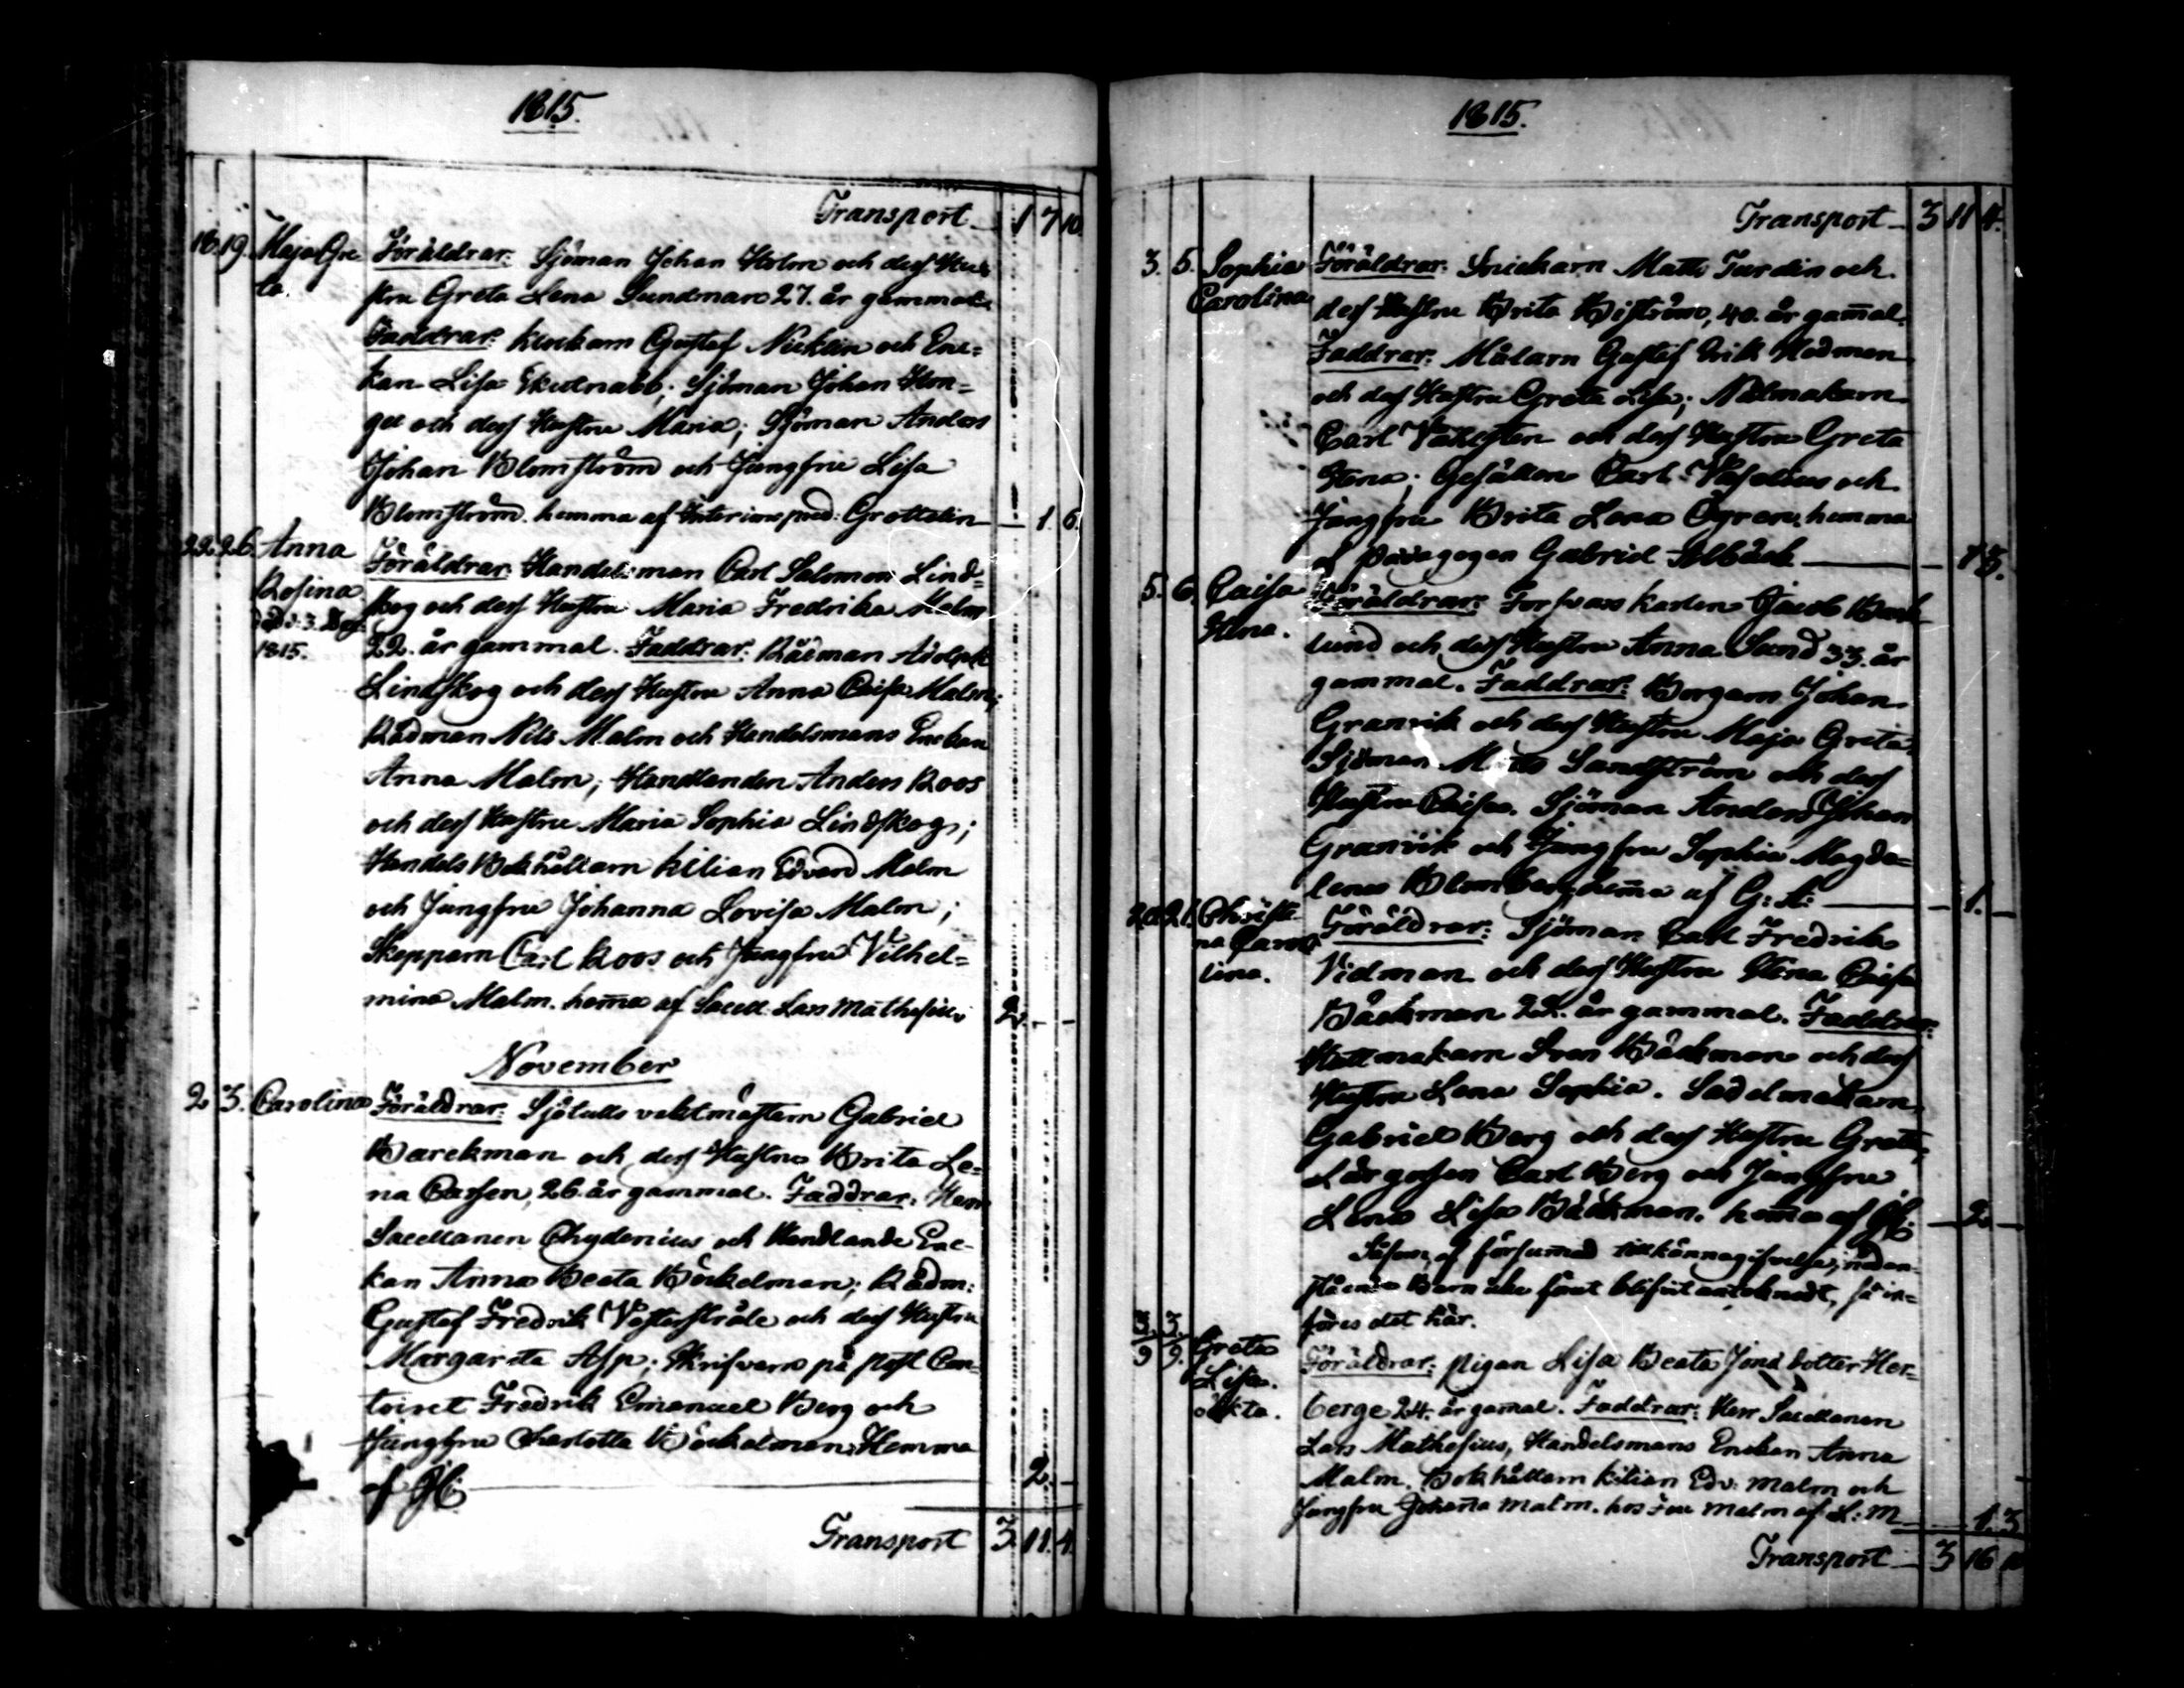 1815.
Transport 1 7 10.
18. 19. Maja Gre= Föräldrar: Sjöman Johan Holm och dess Hu=
ta. stru Greta Lena Sundman 27. år gammal.
Faddrar: Kusk Gustaf Nicklin och Enc=
kan Lisa Skutnabb; Sjöman Johan Hon=
ga och dess Hustru Maria; Sjöman Anders
Johan Blomström och Jungfru Lisa
Blomström. hemma af Interims pred: Grottelin — 1. 6.
22. 26. Anna Föräldrar: Handelsman Carl Salomon Lind=
Rosina skog och dess Hustru Maria Fredrika Malm
död d: 3. Dec: 22. år gammal. Faddrar: Rådman Adolph
1815. Lindskog och dess Hustru Anna Caisa Malm;
Rådman Nils Malm och Handelsmans Enckan
Anna Malm; Handlanden Anders Roos
och dess Hustru Maria Sophia Lindskog;
Handels Bokhållarn Kilian Edvard Malm
och Jungfru Johanna Lovisa Malm;
Skepparn Carl Roos och Jungfru Vilhel=
mina Malm. hemma af Sacell. Lars Mathesius 2. - -
November
2 3. Carolina Föräldrar: Sjötulls vaktmästarn Gabriel
Barckman och dess Hustru Brita Le=
na Carsen, 26. år gammal. Faddrar: Herr
Sacellanen Chydenius och Handlande Enc=
kan Anna Beata Böckelman; Rådm:
Gustaf Fredrik Västerstråle och dess Hustru
Margareta Asp; Skrifvarn på Post Con=
toiret Fredrik Emanuel Berg och
Jungfru Charlotta Böckelman. Hemma
af 2. -
Transport 3. 11. 4.
1815.
Transport 3 11 4.
3. 5. Sophia Föräldrar: Snickarn Matts Turdin och
Carolina dess Hustru Brita Biström, 40. år gam̅al.
Faddrar: Målarn Gustaf Erik Hedman
och dess Hustru Greta Lisa; Nålmakarn
Carl och dess Hustru Greta
Stena; Gesällen Carl och
Jungfru Brita Lena Ögren, hemma
af Pædagogen Gabriel Ahlbäck — 1 3.
5. 6. Caisa Föräldrar: Forsvars karlen Jacob Back=
Stena. lund och dess Hustru Anna Sund 33. år
gammal. Faddrar: Borgarn Johan
Granvik och dess Hustru Maja Greta;
Sjöman Matts Sandström och dess
Hustru Caisa. Sjöman Anders Johan
Granvik och Jungfru Sophia Magda=
lena Blomberg. hem̅a af G: A: — 1. —
20. 21. Christi= Föräldrar: Sjöman Carl Fredrik
na Caro= Vidman och dess Hustru Stena Caisa
lina. Bäckman 22. år gammal. Faddrar:
Hattmakarn Sven Bäckman och dess
Hustru Lena Sophia. Sadelmakarn
Gabriel Berg och dess Hustru Greta;
Lärgossen Carl Berg och Jungfru
Lena Lisa Bäckman. hem̅a af — 2. —
Såsom af försummad tillkännagifvelse, nedan=
stående Barn icke förut blifvit antecknadt, så in=
föres det här.
3. 3. Greta Föräldrar: Pigan Lisa Beata Jons dotter Her=
9 9. Lisa. berge 24. år gam̅al. Faddrar: Herr Sacellanen
oäkta. Lars Mathesius, Handelsmans Enckan Anna
Malm. Bokhållarn Kilian Edv: Malm och
Jungfru Johanna Malm. hos Fru Malm af L: M — 1. 3
Transport 3 16 10